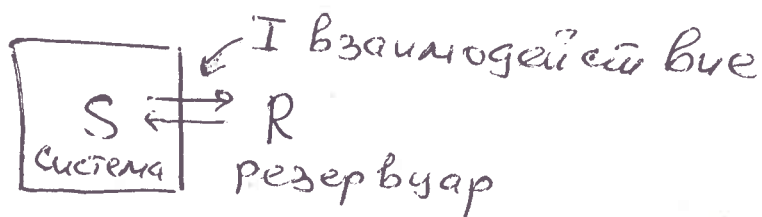 I взаимодействие
S R
система
резервуар